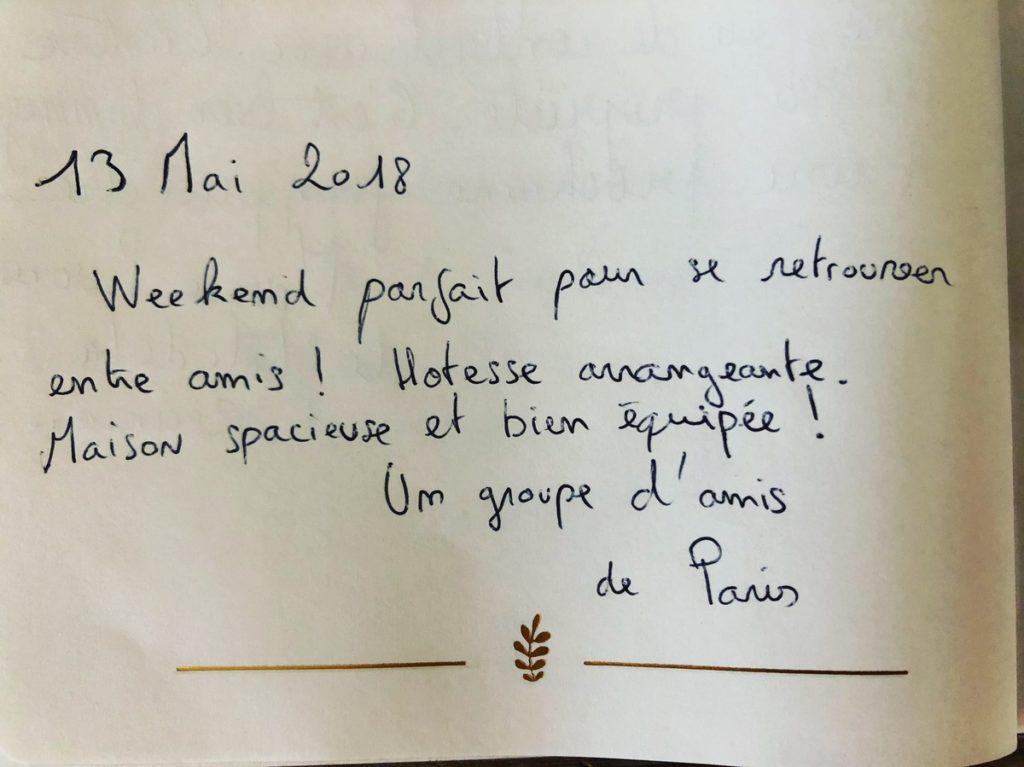 13 Mai 2018
Weekend parfait pour se retrouver
entre amis ! Hotesse arrangeante.
Maison spacieuse et bien équipée !
Un groupe d'amis
de Paris